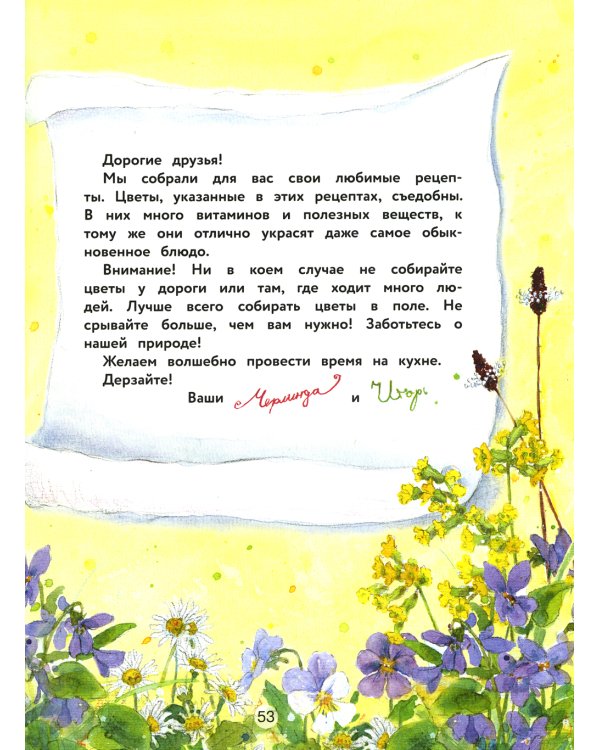 Дорогие друзья!
Мы собрали для вас свои любимые рецеп-
ты. Цветы, указанные в этих рецептах, съедобны.
В них много витаминов и полезных веществ, к
тому же они отлично украсят даже самое обык-
новенное блюдо.
Внимание! Ни в коем случае не собирайте
цветы у дороги или там, где ходит много лю-
дей. Лучше всего собирать цветы в поле. Не
срывайте больше, чем вам нужно! Заботьтесь о
нашей природе!
Желаем волшебно провести время на кухне.
Дерзайте!
Ваши Мерлинда и Игорь
53